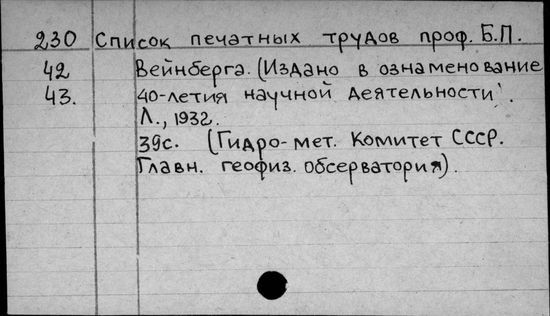 230 Список печатных трудов проф. Б.П.
42 Вейнберга. (Издано в ознаменование
43. 40-летия научной деятельности).
Л., 1932.
39с. (Гидро-мет. Комитет СССР.
Главн. геофиз. обсерватория).